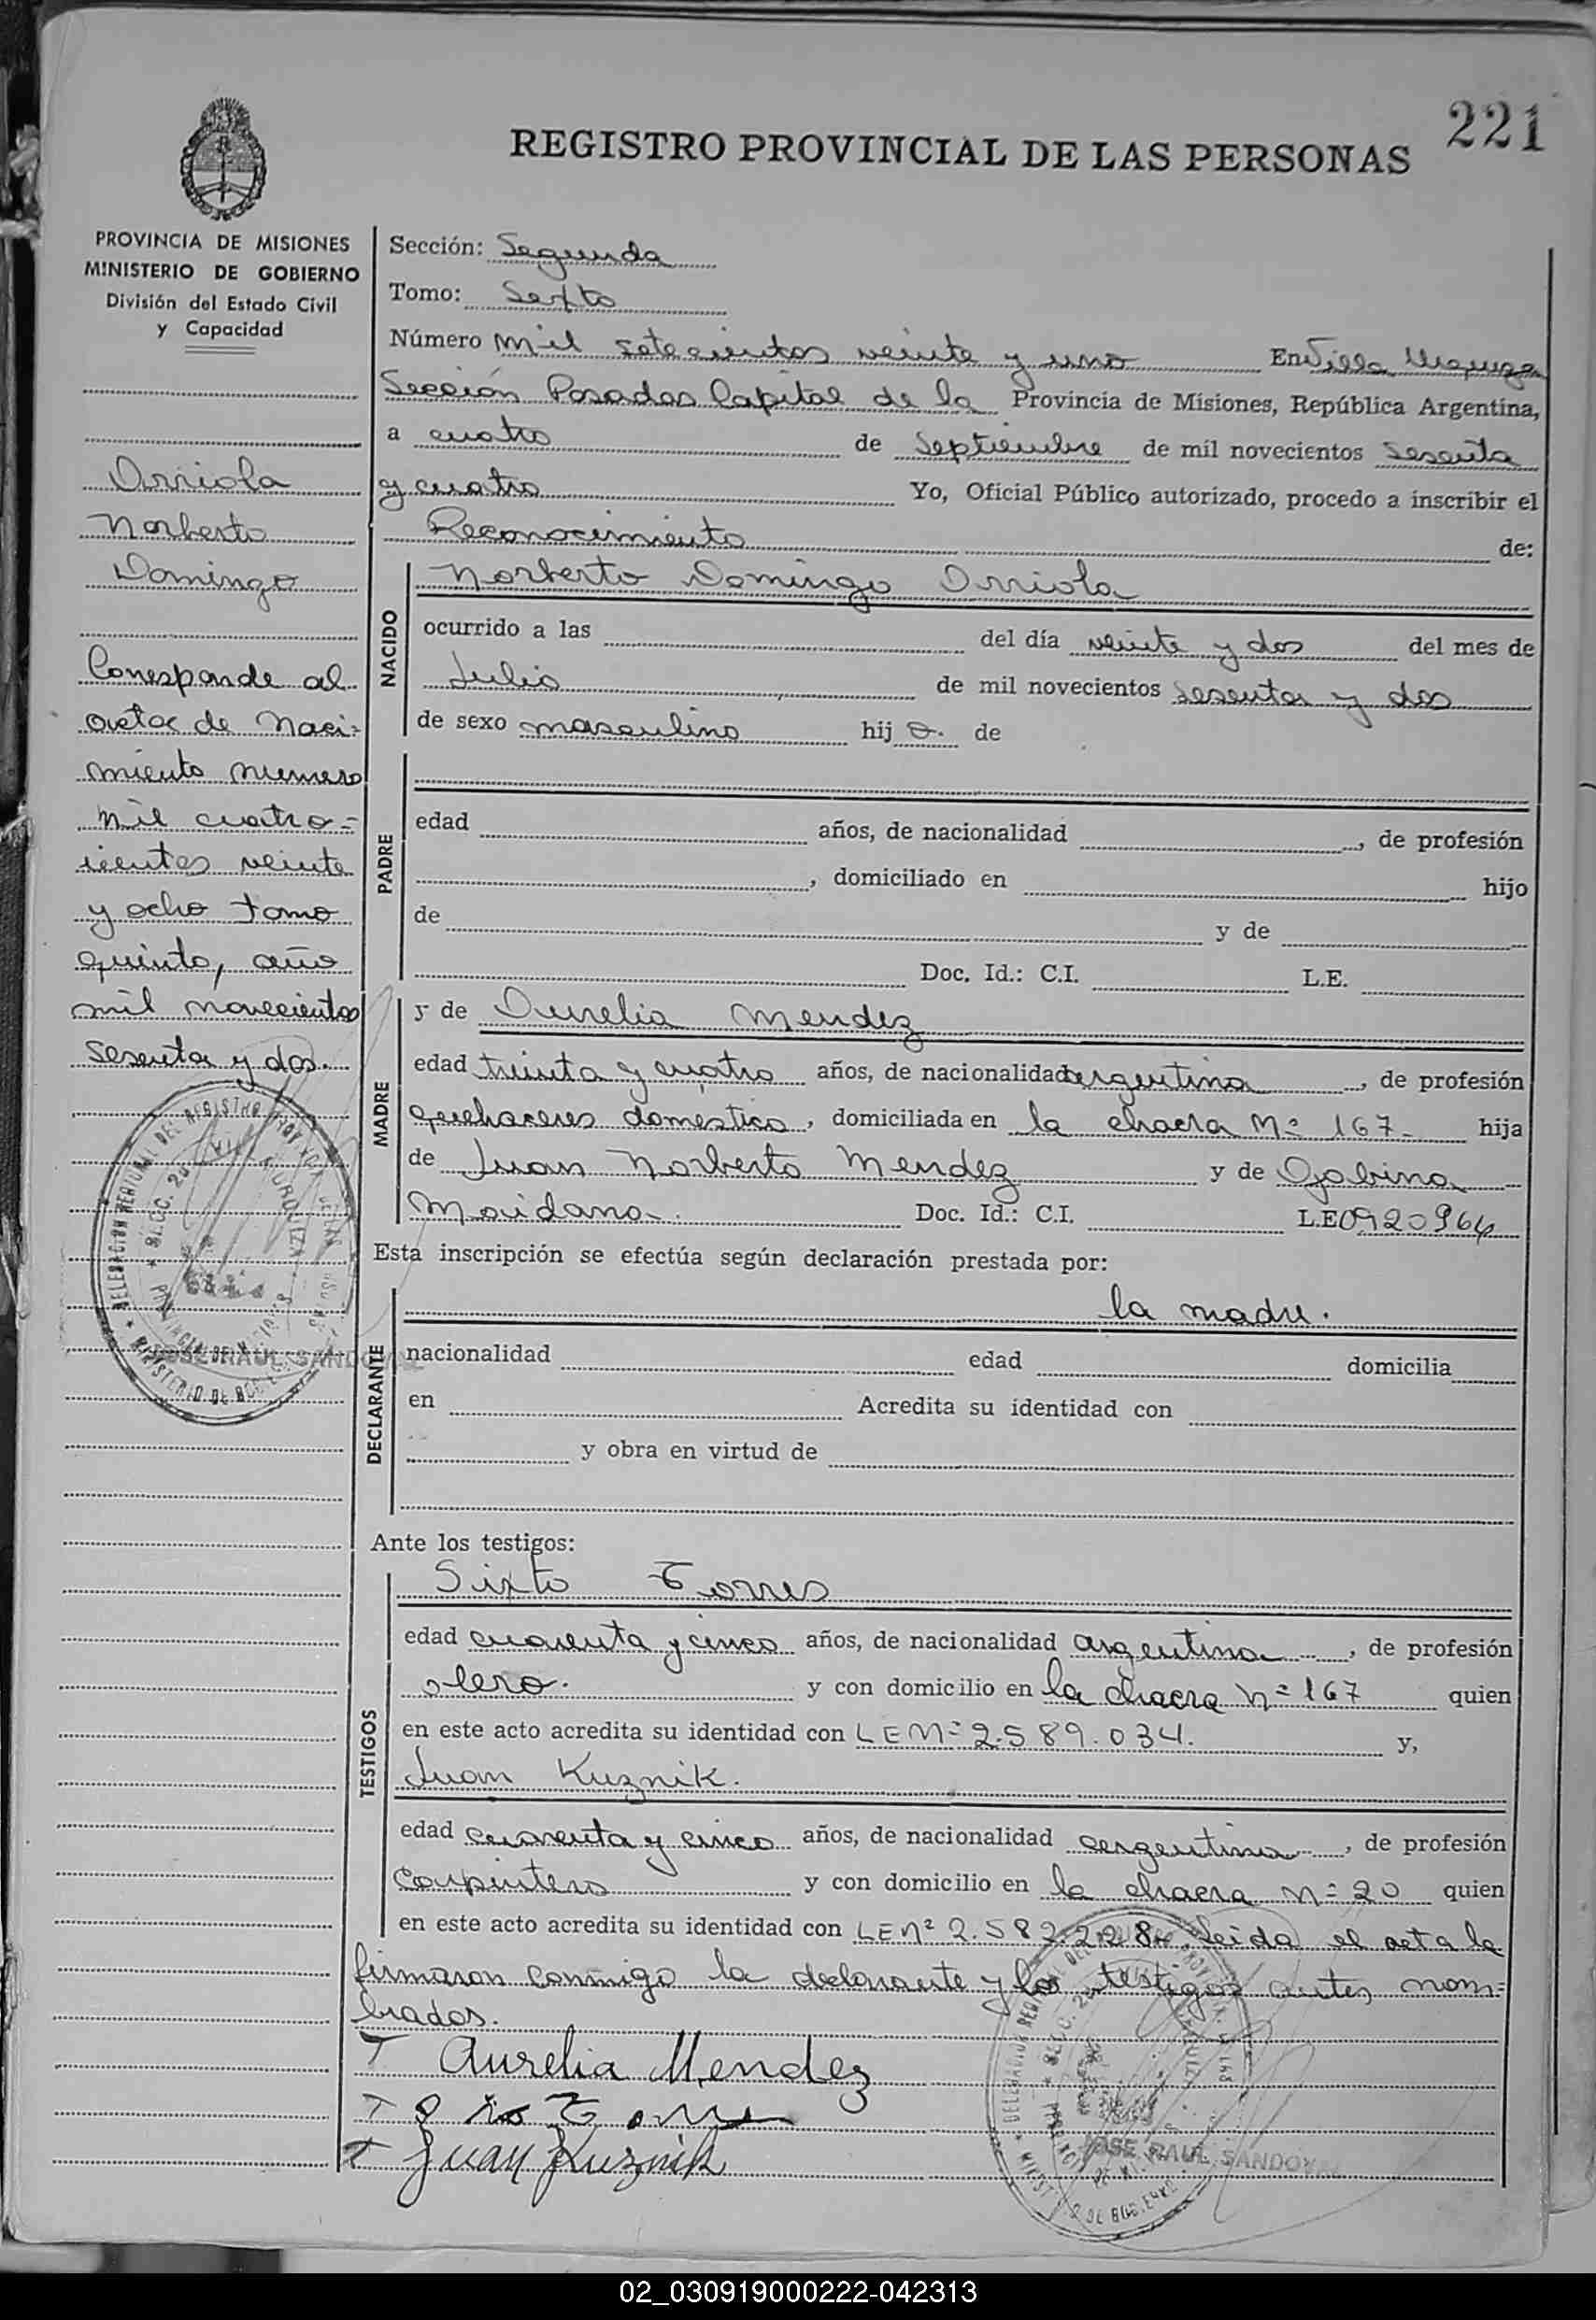 221
REGISTRO PROVINCIAL DE LAS PERSONAS
PROVINCIA DE MISIONES
MINISTERIO DE GOBIERNO
División del Estado Civil
y Capacidad
Arriola
Norberto
Domingo
Corresponde al
acta de Naci-
miento numero
mil cuatro-
cientos veinte
y ocho tomo
quinto, año
mil novecientos
sesenta y dos.
JOSE RAUL SANDOVAL
Sección: Segunda
Tomo: Sexto
Número mil setecientos veinte y uno En Villa Urquiza
Sección Posadas Capital de la Provincia de Misiones, República Argentina,
a cuatro de Septiembre de mil novecientos sesenta
y cuatro Yo, Oficial Público autorizado, procedo a inscribir el
Reconocimiento de:
NACIDO
Norberto Domingo Arriola
ocurrido a las del día veinte y dos del mes de
Julio de mil novecientos sesenta y dos
de sexo masculino hijo de
PADRE
edad años, de nacionalidad , de profesión
, domiciliado en hijo
de y de
Doc. Id.: C.I. L.E.
MADRE
y de Aurelia Mendez
edad treinta y cuatro años, de nacionalidad argentina , de profesión
quehaceres domestico , domiciliada en la chacra Nº 167- hija
de Juan Norberto Mendez y de Gabina
Doc. Id.: C.I. L.E 0920964
Esta inscripción se efectúa según declaración prestada por:
DECLARANTE
la madre.
nacionalidad edad domicilia
en Acredita su identidad con
y obra en virtud de
Ante los testigos:
TESTIGOS
Sixto Torres
edad cuarenta y cinco años, de nacionalidad argentina , de profesión
olero. y con domicilio en la chacra nº 167 quien
en este acto acredita su identidad con LE Nº 2.589.034. y,
Juan Kuznik.
edad cuarenta y cinco años, de nacionalidad argentina , de profesión
carpintero y con domicilio en la chacra nº 20 quien
en este acto acredita su identidad con LE nº 2.582.228- Leida el acta la
firmaron conmigo la declarante y los testigos antes nom-
brados.
Aurelia Mendez
Juan Kuznik
JOSE RAUL SANDOVAL
02_030919000222-042313